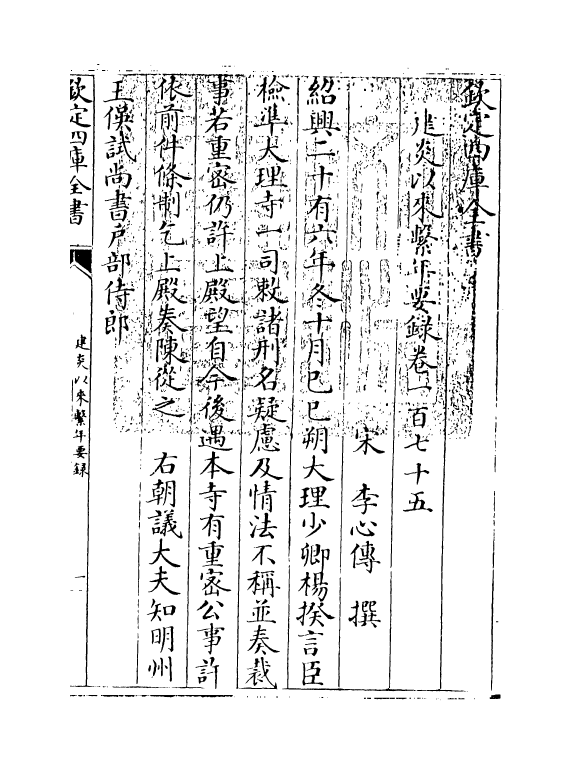 欽定四庫全書
建炎以來繫年要錄卷一百七十五
宋　李心傳　撰
紹興二十有六年冬十月己巳朔大理少卿楊揆言臣
檢準大理寺一司敕諸刑名疑慮及情法不稱並奏裁
事若重密仍許上殿望自今後遇本寺有重密公事許
依前件條制乞上殿奏陳從之　右朝議大夫知明州
王俁試尚書戶部侍郎
欽定四庫全書
建炎以來繫年要錄
一